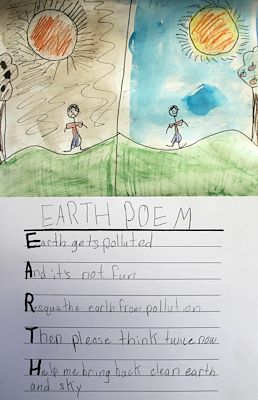 EARTH POEM
Earth gets polluted
And it's not fun
Resque the earth from pollution
Then please think twice now
Help me bring back clean earth
and sky